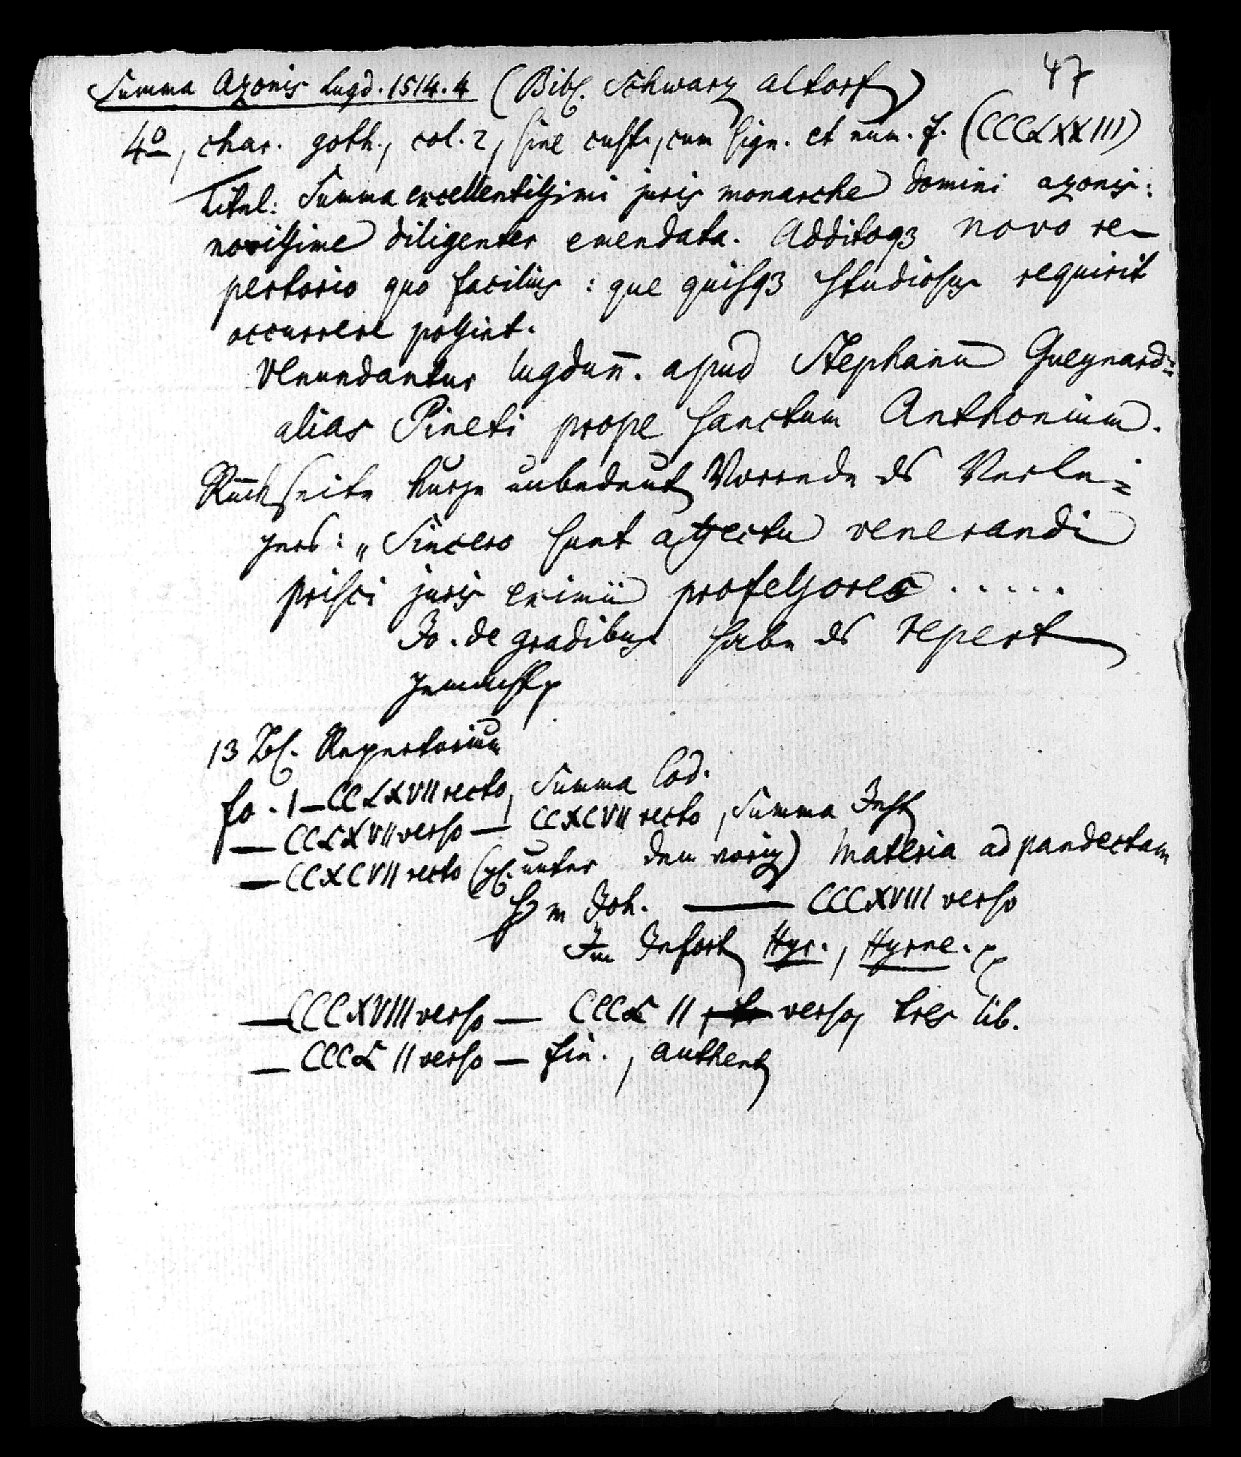 47
Summa Azonis Lugd. 1514. 4 (Bibl. Schwarz Altorf)
4o, char. goth., col. 2, sine cust., cum sign. et num. f. (CCCLXXIII)
Titel: Summa excellentissimi juris monarche domini azonis:
novissime diligenter emendata. Additoqz novo re-
pertorio quo facilius : que quisqz studiosus requirit
occurrere possint.
Venundantur lugdun̄. apud Stephanū Gueynard=
alias Pineti prope sanctum Anthonium.
Rückseite kurze unbedeut Vorrede ds Verle=
gers: „Sincero sunt affectu venerandi
prisci juris eximii professores .....
Jo. de gradibus habe ds repert
gemacht
13 Bl. Repertorium
fo. I—CCLXVII recto, Summa Cod.
— CCLXVII verso — CCXCVII recto, Summa Inst
— CCXCVII recto (gl. unter dem vorig) Materia ad pandectam
Joh. — CCCXVIII verso
Im Infort Hyr., Hyrne.
— CCCXVIII verso — CCCL II verso, tres lib.
— CCCL II verso — fin., authent